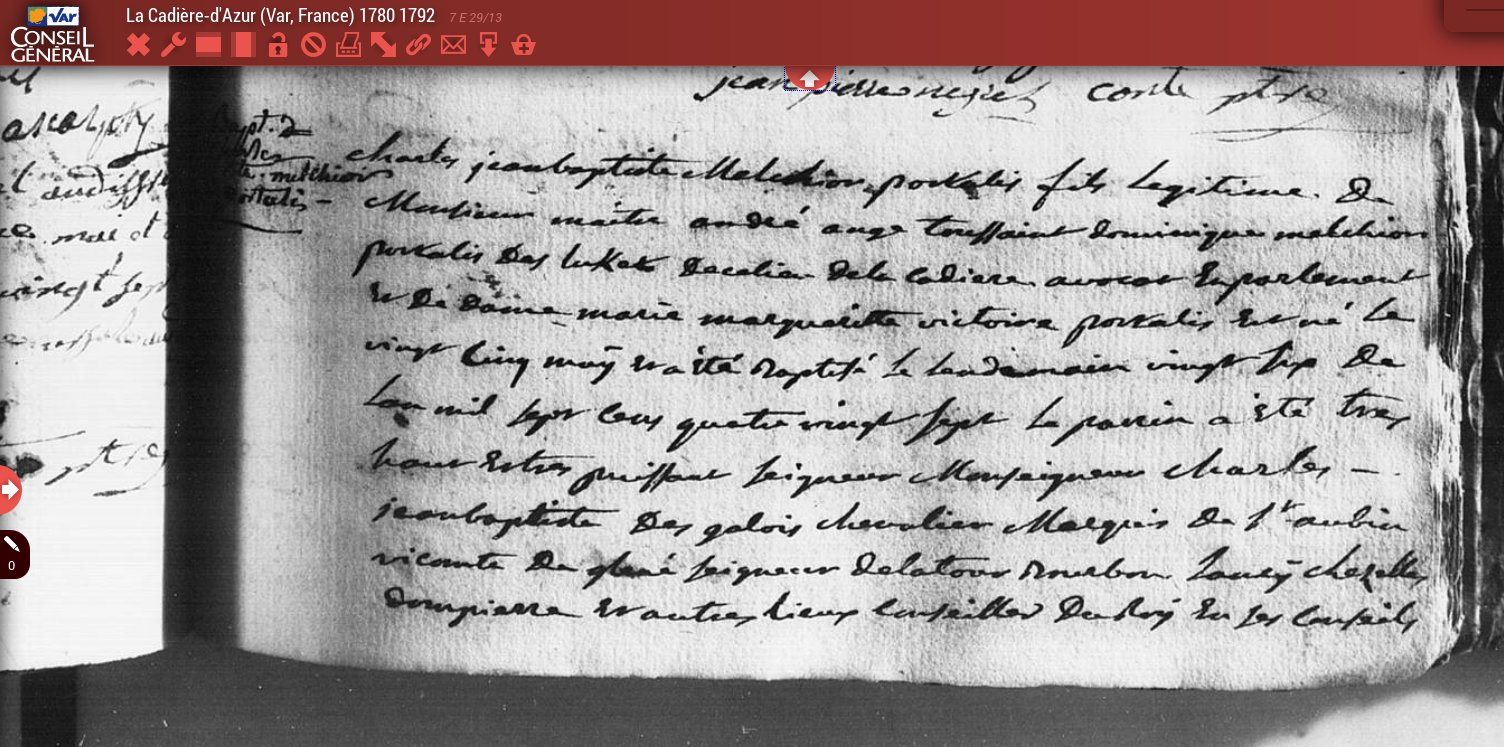 Var
CONSEIL
GÉNÉRAL
La Cadière-d'Azur (Var, France) 1780 1792 7 E 29/13
0
vingt sept
ptre
jean conte ptre
melchior
portalis
charles jeanbaptiste Melchior portalis fils legitime De
Monsieur maitre andré ange toussaint dominique melchior
portalis Des lukets De la cadiere avocat En parlement
Et De dame marie marguerite victoire portalis Est né Le
vingt Cinq may Et a été Baptisé Le lendemain vingt six De
Lan mil sept Cens quatre vingt sept Le parrin a Eté tres
haut Et tres puissant seigneur Monseigneur charles
jeanbaptiste Des galois chevalier Marquis De St aubin
vicomte De glené seigneur De latour Bourbon chezelles
dompierre Et autres Lieux Conseiller Du Roy En ses Conseils